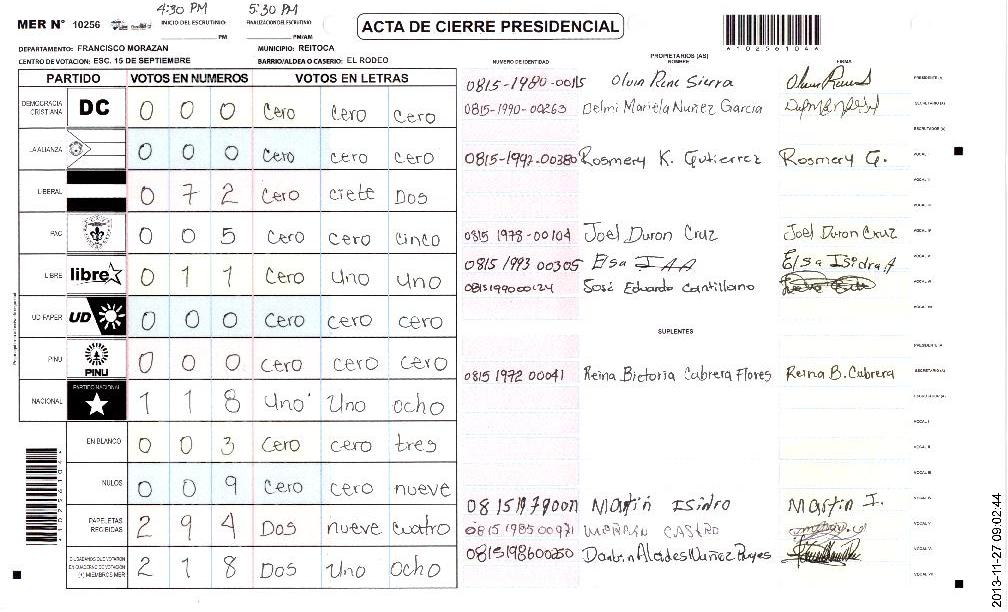 4:30 PM 5:30 PM
MER Nº 10256 INICIO DEL ESCRUTINIO FINALIZACION DEL ESCRUTINIO
PM PM/AM
ACTA DE CIERRE PRESIDENCIAL
DEPARTAMENTO: FRANCISCO MORAZAN MUNICIPIO: REITOCA
CENTRO DE VOTACION: ESC. 15 DE SEPTIEMBRE BARRIO/ALDEA O CASERIO: EL RODEO
PROPIETARIOS (AS)
NUMERO DE IDENTIDAD NOMBRE FIRMA
PARTIDO VOTOS EN NUMEROS VOTOS EN LETRAS
DEMOCRACIA CRISTIANA DC 0 0 0 Cero Cero Cero
LA ALIANZA 0 0 0 Cero cero cero
LIBERAL 0 7 2 Cero ciete Dos
PAC 0 0 5 Cero Cero cinco
LIBRE libre 0 1 1 Cero Uno uno
UD FAPER UD 0 0 0 Cero cero cero
PINU PINU 0 0 0 cero cero cero
NACIONAL PARTIDO NACIONAL 1 1 8 Uno Uno ocho
EN BLANCO 0 0 3 Cero cero tres
NULOS 0 0 9 Cero cero nueve
PAPELETAS RECIBIDAS 2 9 4 Dos nueve cuatro
CIUDADANOS QUE VOTARON EN CUADERNO DE VOTACION (+) MIEMBROS MER 2 1 8 Dos Uno ocho
Olvin Rene Sierra PRESIDENTE (A)
0815-1990-00263 Delmi Mariela Nuñez Garcia SECRETARIO (A)
ESCRUTADOR (A)
0815-1992-00380 Rosmery K. Gutierrez Rosmery G. VOCAL I
VOCAL II
VOCAL III
0815 1978-00104 Joel Duron Cruz Joel Duron Cruz VOCAL IV
0815 1993 00305 Elsa I A A Elsa Isidra A VOCAL V
José Eduardo Cantillano VOCAL VI
VOCAL VII
SUPLENTES
PRESIDENTE (A)
0815 1972 00041 Reina Bictoria Cabrera Flores Reina B. Cabrera SECRETARIO (A)
ESCRUTADOR (A)
VOCAL I
VOCAL II
VOCAL III
Martin Isidro Martin I. VOCAL IV
0815198500971 CASTRO VOCAL V
Nuñez Reyes VOCAL VI
VOCAL VII
2013-11-27 09:02:44